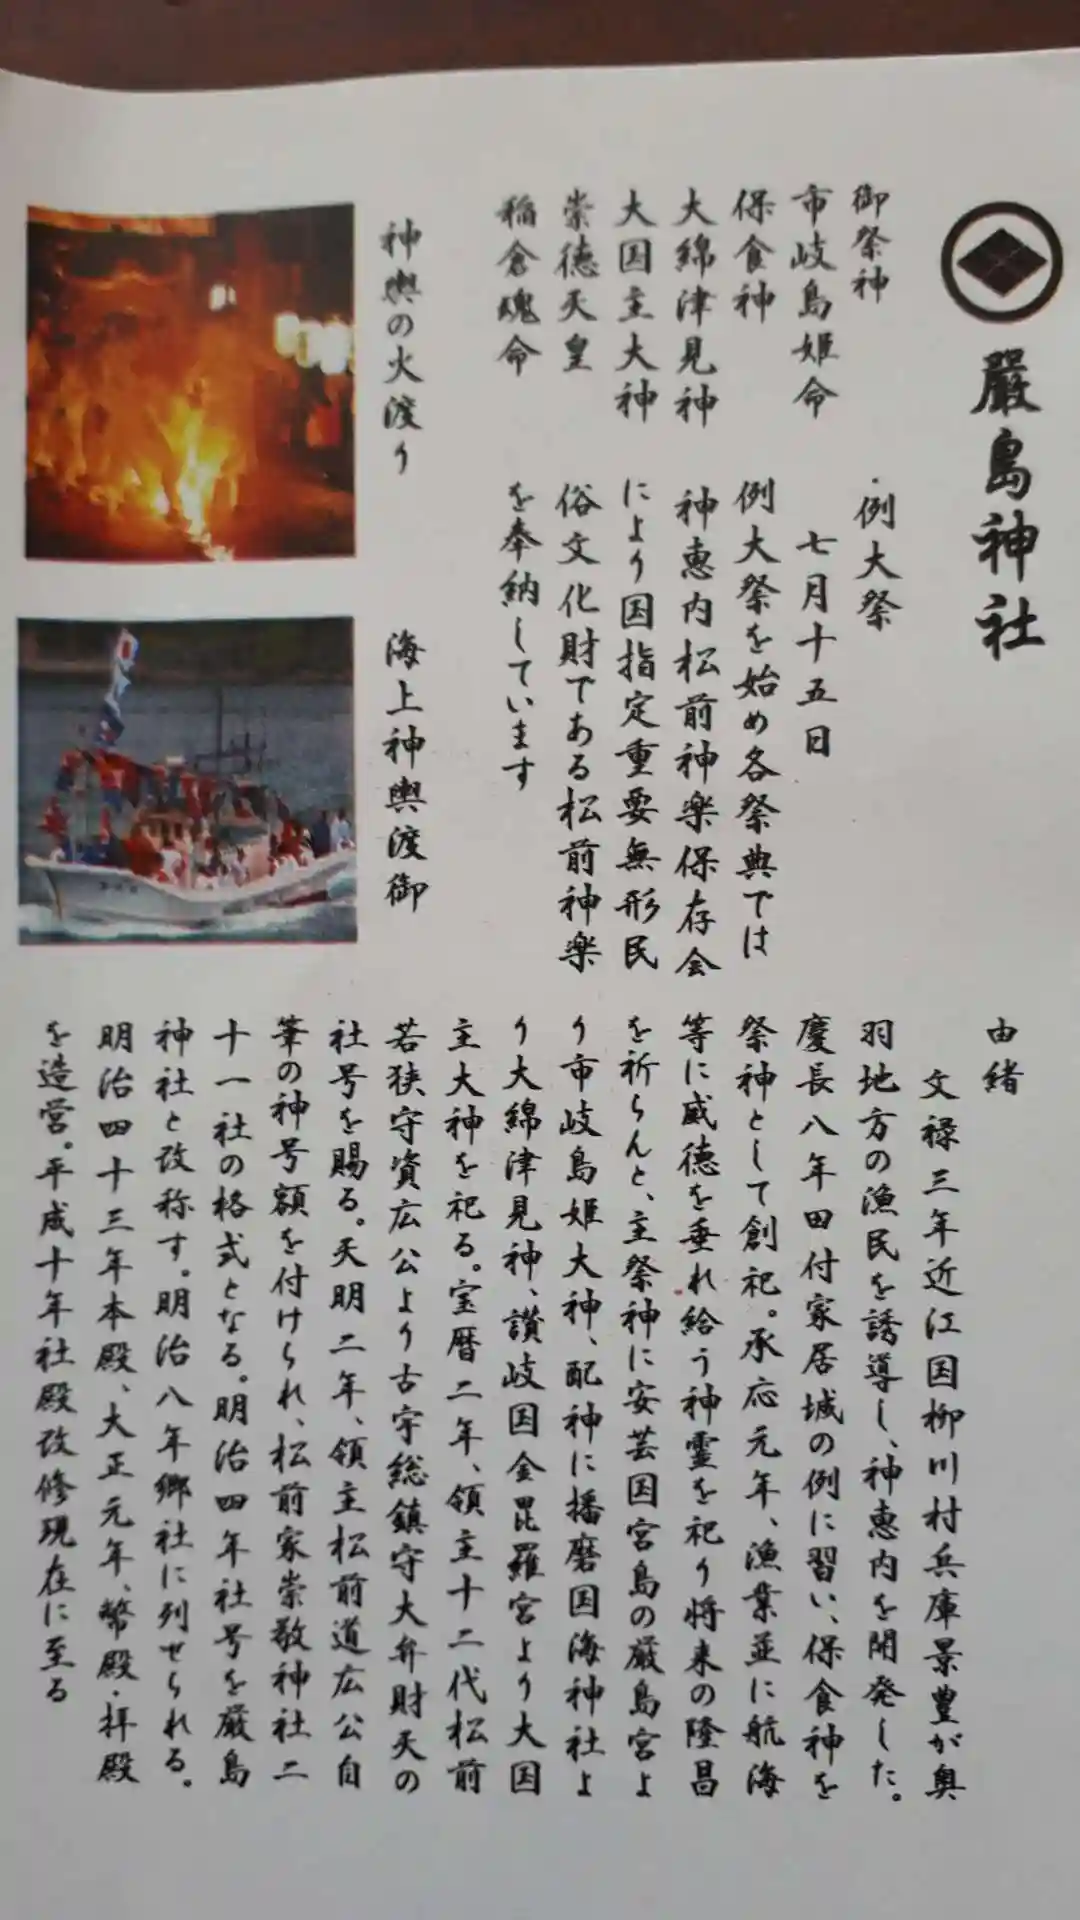 嚴島神社
御祭神
市岐島姫命
保食神
大綿津見神
大国主大神
崇徳天皇
稲倉魂命
・例大祭
七月十五日
例大祭を始め各祭典では
神恵内松前神楽保存会
により国指定重要無形民
俗文化財である松前神楽
を奉納しています
神輿の火渡り
海上神輿渡御
由緒
文禄三年近江国柳川村兵庫景豊が奥
羽地方の漁民を誘導し、神恵内を開発した。
慶長八年田付家居城の例に習い、保食神を
祭神として創祀。承応元年、漁業並に航海
等に威徳を垂れ給う神霊を祀り将来の隆昌
を祈らんと、主祭神に安芸国宮島の厳島宮よ
り市岐島姫大神、配神に播磨国海神社よ
り大綿津見神、讃岐国金毘羅宮より大国
主大神を祀る。宝暦二年、領主十二代松前
若狭守資広公より古宇総鎮守大弁財天の
社号を賜る。天明二年、領主松前道広公自
筆の神号額を付けられ、松前家崇敬神社二
十一社の格式となる。明治四年社号を厳島
神社と改称す。明治八年郷社に列せられる。
明治四十三年本殿、大正元年、幣殿・拝殿
を造営。平成十年社殿改修現在に至る